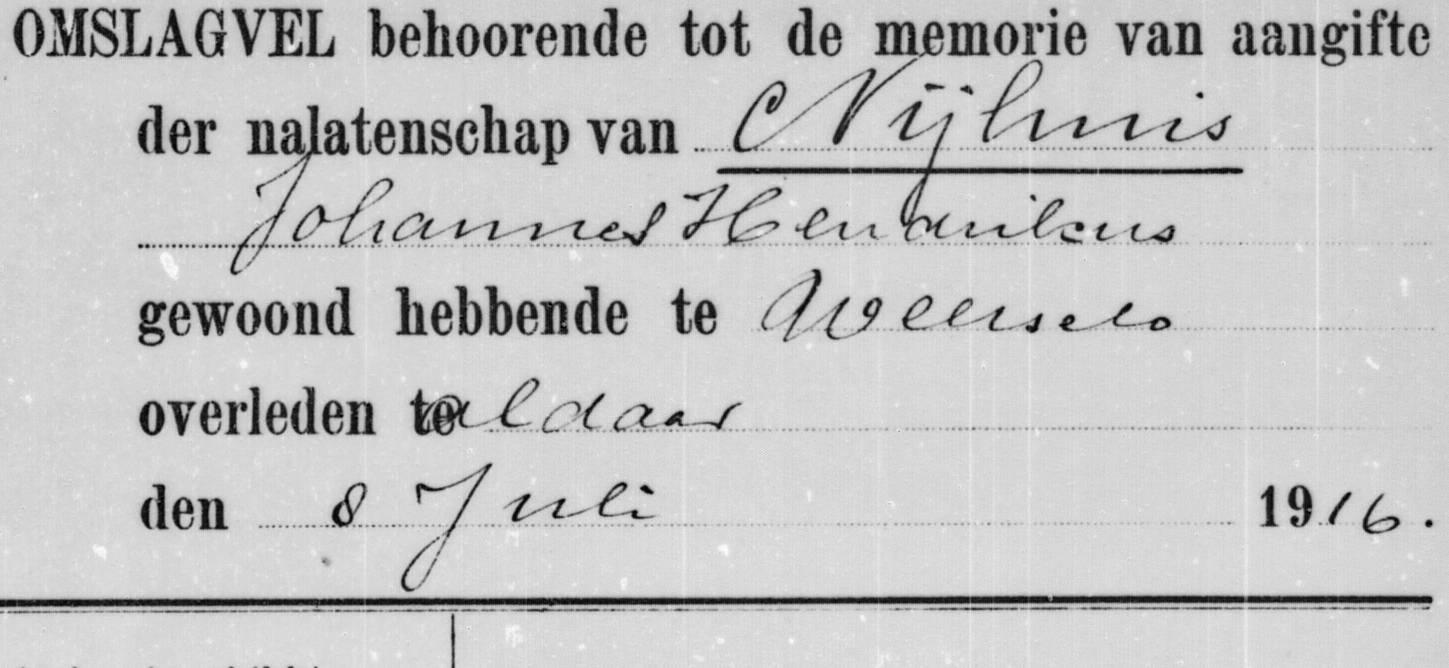 OMSLAGVEL behoorende tot de memorie van aangifte
der nalatenschap van Nijhuis
Johannes Hendrikus
gewoond hebbende te Weerselo
overleden te aldaar
den 8 Juli 1916.